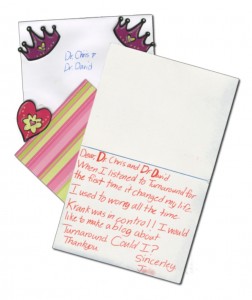 Dr. Chris &
Dr. David
Dear Dr. Chris and Dr. David
When I listened to Turnaround for
the first time it changed my life.
I used to worry all the time.
Krank was in control! I would
like to make a blog about
Turnaround Could I?
Thankyou Sincerley,